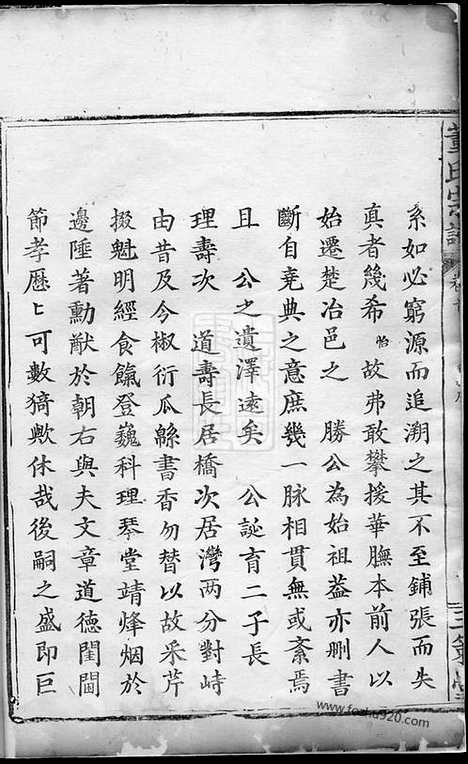 系如必窮源而追溯之其不至鋪張而失
真者幾希怡故弗敢攀援華膴本前人以
始遷楚冶邑之　勝公為始祖葢亦刪書
斷自堯典之意庶幾一脉相貫無或紊焉
且　公之遺澤遠矣　公誕育二子長
理壽次　道壽長居橋次居灣两分對峙
由昔及今椒衍瓜緜書香勿替以故采芹
掇魁明經食餼登巍科理琴堂靖烽烟於
邊陲著勳猷於朝右與夫文章道德閨閫
節孝歷歷可數猗歟休哉後嗣之盛即巨
董氏宗譜
三策堂
www.foshu920.com